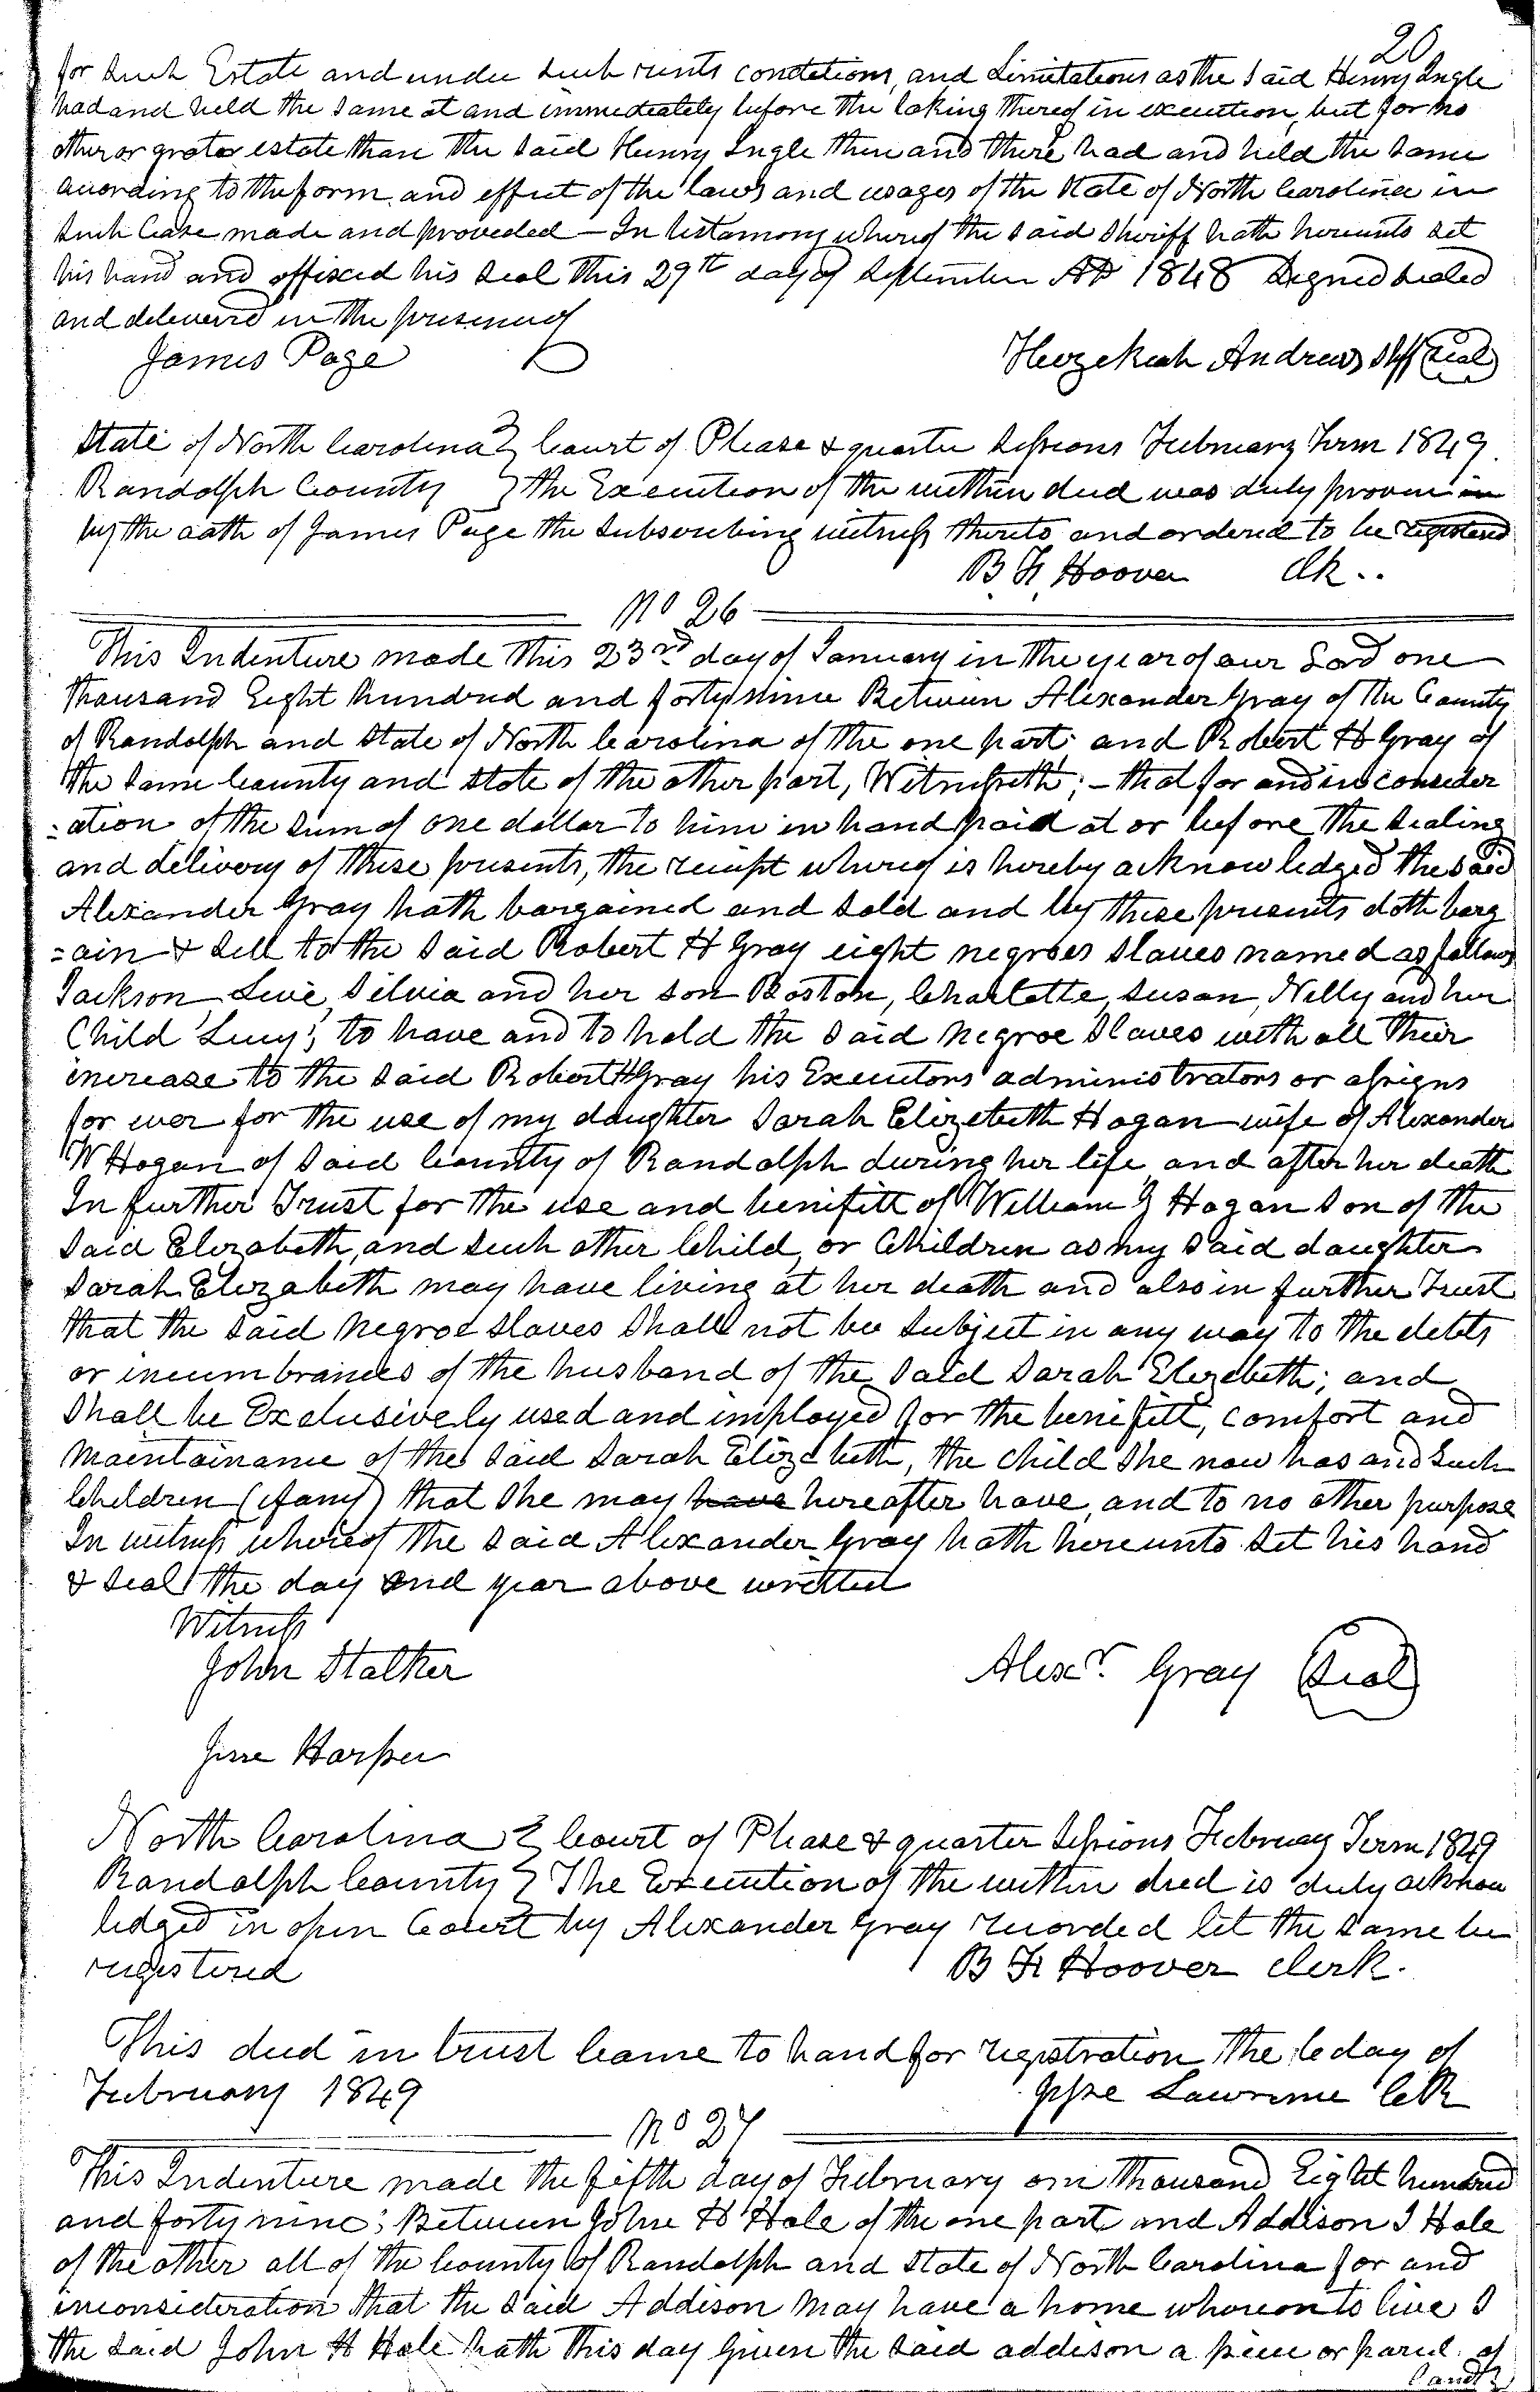 20
for such Estate and under such rents conditions, and Limitations as the said Henry Ingle
had and held the same at and immediately before the taking thereof in execution, but for no
other or grater estate than the said Henry Ingle then and there had and held the same
according to the form and effect of the laws and usages of the State of North Carolina in
such Case made and provided — In testamony whereof the said Sheriff hath hereunto set
his hand and affixed his seal this 29th day of September AD 1848 Signed sealed
and delivered in the presence of
James Page Hezekiah Andrews Shff Seal
State of North Carolina } Court of Please & quarter Sessions February Term 1849.
Randolph County } the Execution of the within deed was duly proven in
by the oath of James Page the subscribing witness thereto and ordered to be registered
B. F. Hoover Clk..
No 26
This Indenture made this 23rd day of January in the year of our Lord one
thousand Eight hundred and forty nine Between Alexander Gray of the County
of Randolph and State of North Carolina of the one part and Robert H Gray of
the same County and State of the other part, Witnesseth; - that for and in consider
:ation of the sum of one dollar to him in hand paid at or before the sealing
and delivery of these presents, the receipt whereof is hereby acknowledged the said
Alexander Gray hath bargained and sold and by these presents doth barg
=ain & sell to the said Robert H Gray eight negroes slaves named as follows
Jackson Sue, Silvia and her son Boston, Charlotte, Susan, Nelly and her
Child Lucy; to have and to hold the said negroe slaves with all their
increase to the said Robert H Gray his Executors administrators or assigns
for ever for the use of my daughter Sarah Elizebeth Hogan wife of Alexander
W Hogan of said County of Randolph during her life and after her death
In further Trust for the use and benifitt of William G Hogan son of the
said Elizabeth, and such other Child, or Children as my said daughter
Sarah Elizabeth may have living at her death and also in further Trust
that the said Negroe slaves shall not be subject in any way to the debts
or incumbrances of the husband of the said Sarah Elizebeth; and
shall be Exclusively used and imployed for the benifitt, comfort and
Maintainance of the said Sarah Elizabeth, the child she now has and such
Children (if any) that she may have hereafter have, and to no other purpose
In witness whereof the said Alexander Gray hath hereunto set his hand
& seal the day and year above written
Witness
John Stalker Alexr. Gray Seal
Jesse Harper
North Carolina } Court of Please & quarter Sessions February Term 1849
Randolph County } The Execution of the within deed is duly acknow
ledged in open Court by Alexander Gray recorded let the same be
registered B F Hoover Clerk.
This deed in trust came to hand for registration the 6 day of
February 1849 Jesse Lawrence
No 27
This Indenture made the fifth day of February one thousand Eight hundred
and forty nine; Between John H Hale of the one part and Addison I Hale
of the other all of the County of Randolph and State of North Carolina for and
inconsideration that the said Addison may have a home whereon to live I
the said John H Hale hath this day given the said addison a piece or parcel of
land